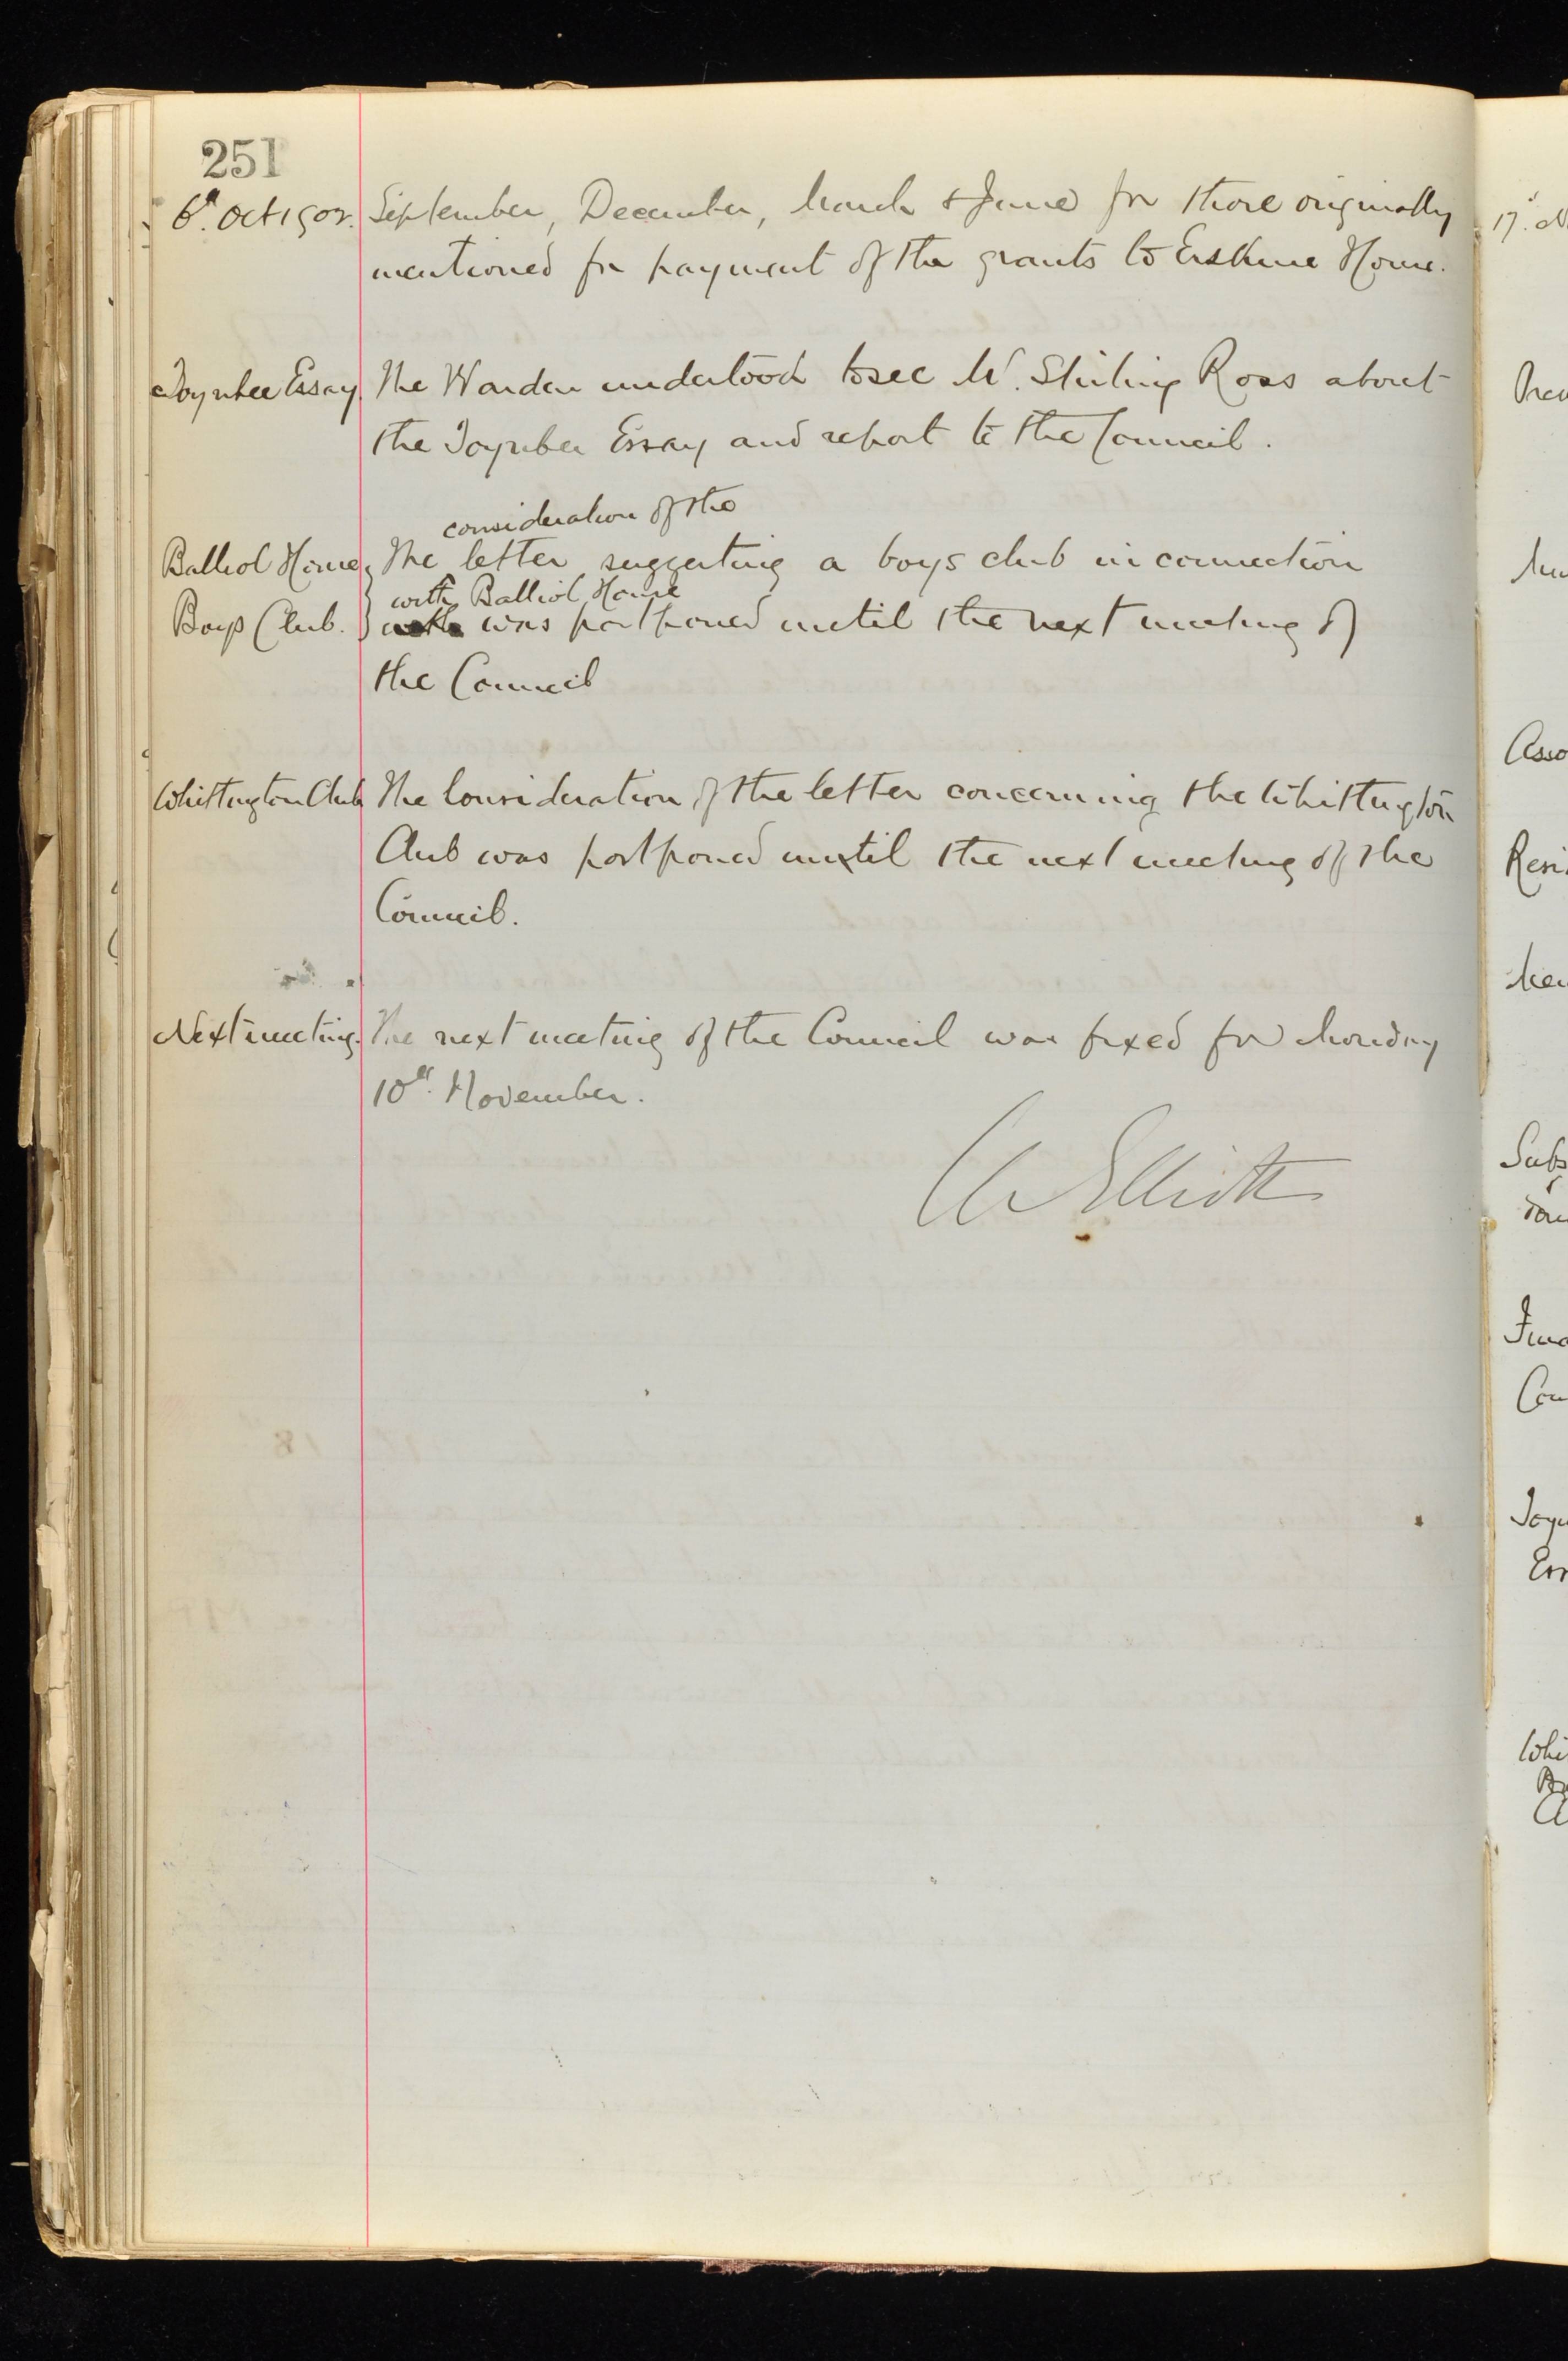 251
6th. Oct 1902. September, December, March & June for those originally
mentioned for payment of the grants to Erskine House.
Toynbee Essay The Warden undertood to see Mr. Stirling Ross about
the Toynbee Essay and report to the Council.
consideration of the
Balliol House The letter suggesting a boys club in connection
with Balliol House
Boys Club. was postponed until the next meeting of
the Council
Whittington Club The Consideration of the letter concerning the Whittington
Club was postponed until the next meeting of the
Council.
Next meeting. The next meeting of the Council was fixed for Monday
10th. November.
Elliott
17.
Asso
Resi
Subs
Toyn
Whi